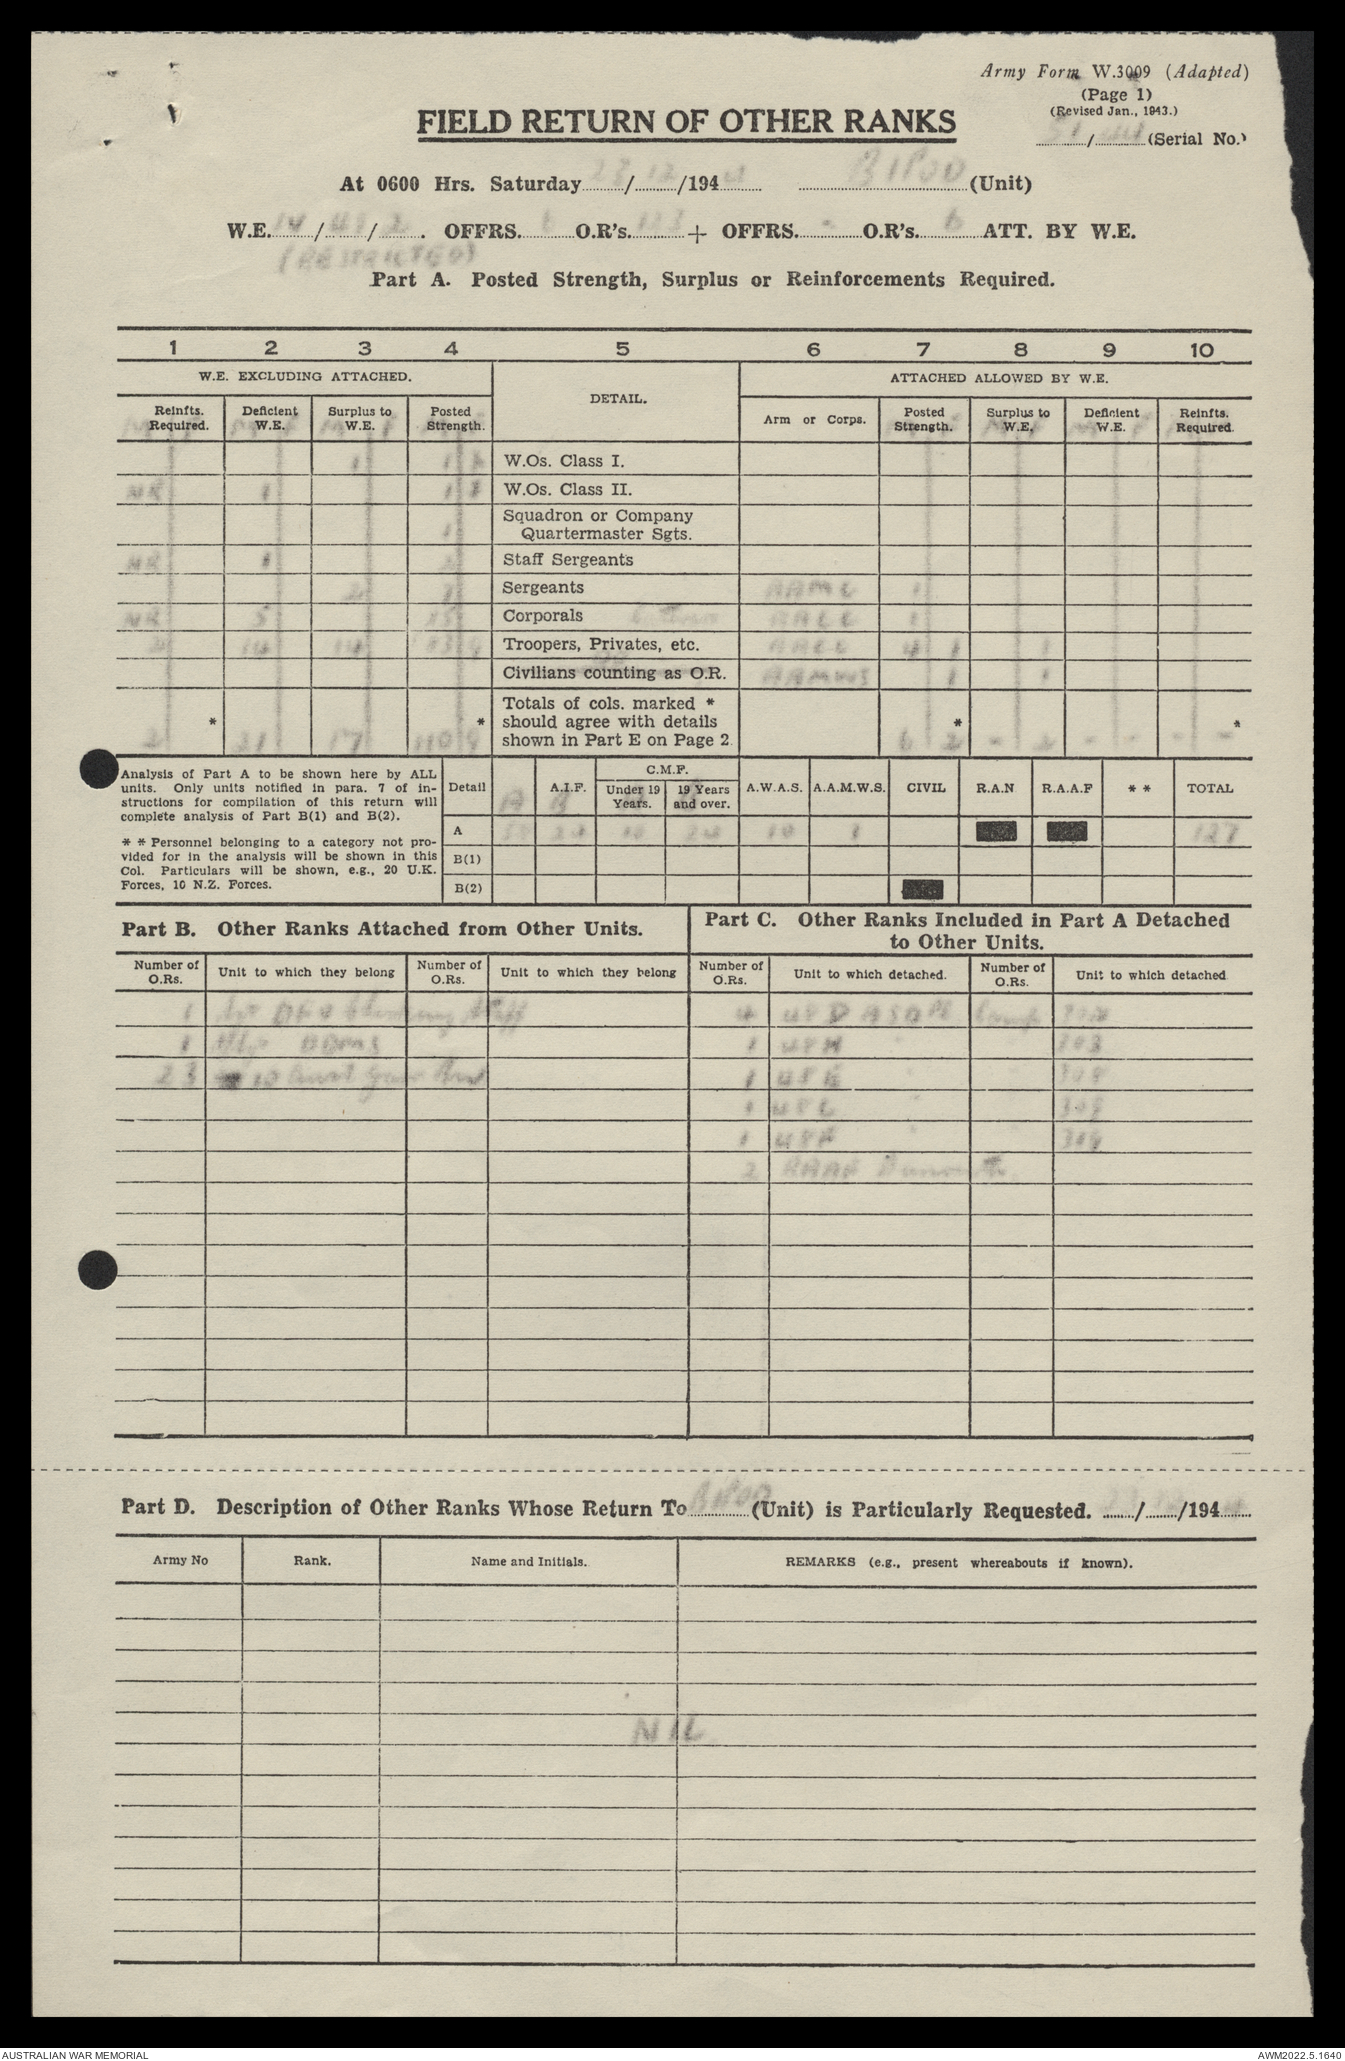 Army Form W.3009 (Adapted)
(Page 1)
(Revised Jan., 1943.)
51/44 (Serial No.)
FIELD RETURN OF OTHER RANKS
At 0600 Hrs. Saturday 23/12/1944 BIPOD (Unit)
W.E. 14/49/2. OFFRS. 6 O.R's. 123 + OFFRS. - O.R's. 6 ATT. BY W.E.
(RESTRICTED)
Part A. Posted Strength, Surplus or Reinforcements Required.
1 2 3 4 5 6 7 8 9 10
W.E. EXCLUDING ATTACHED. DETAIL. ATTACHED ALLOWED BY W.E.
Reinfts. Required. Deficient W.E. Surplus to W.E. Posted Strength. Arm or Corps. Posted Strength. Surplus to W.E. Deficient W.E. Reinfts. Required.
M F M F M F M F M F M F
1 1 W.Os. Class I.
NR 1 1 W.Os. Class II.
1 Squadron or Company Quartermaster Sgts.
NR 1 2 Staff Sergeants
2 Sergeants AAMC 1
NR 5 15 Corporals AACC 1
2 14 14 9 Troopers, Privates, etc. AACC 4 1 1
Civilians counting as O.R. AAMWS 1 1
2 21 17 110 9 Totals of cols. marked * should agree with details shown in Part E on Page 2. 6 2 - 2 - - - -
Analysis of Part A to be shown here by ALL units. Only units notified in para. 7 of instructions for compilation of this return will complete analysis of Part B(1) and B(2).
* * Personnel belonging to a category not provided for in the analysis will be shown in this Col. Particulars will be shown, e.g., 20 U.K. Forces, 10 N.Z. Forces.
Detail A.I.F. C.M.F. Under 19 Years. 19 Years and over. A.W.A.S. A.A.M.W.S. CIVIL R.A.N R.A.A.F * * TOTAL
A B
A 24 10 24 10 1 127
B(1)
B(2)
Part B. Other Ranks Attached from Other Units.
Part C. Other Ranks Included in Part A Detached to Other Units.
Number of O.Rs. Unit to which they belong Number of O.Rs. Unit to which they belong Number of O.Rs. Unit to which detached. Number of O.Rs. Unit to which detached.
1 Staff 4 48D
1 DDMS 1 48H 303
23 10 Aust 1 48K 308
1 48L 309
1 48F
2 RAAF
Part D. Description of Other Ranks Whose Return To BIPOD (Unit) is Particularly Requested. 23/12/1944
Army No Rank. Name and Initials. REMARKS (e.g., present whereabouts if known).
NIL
AUSTRALIAN WAR MEMORIAL
AWM2022.5.1640